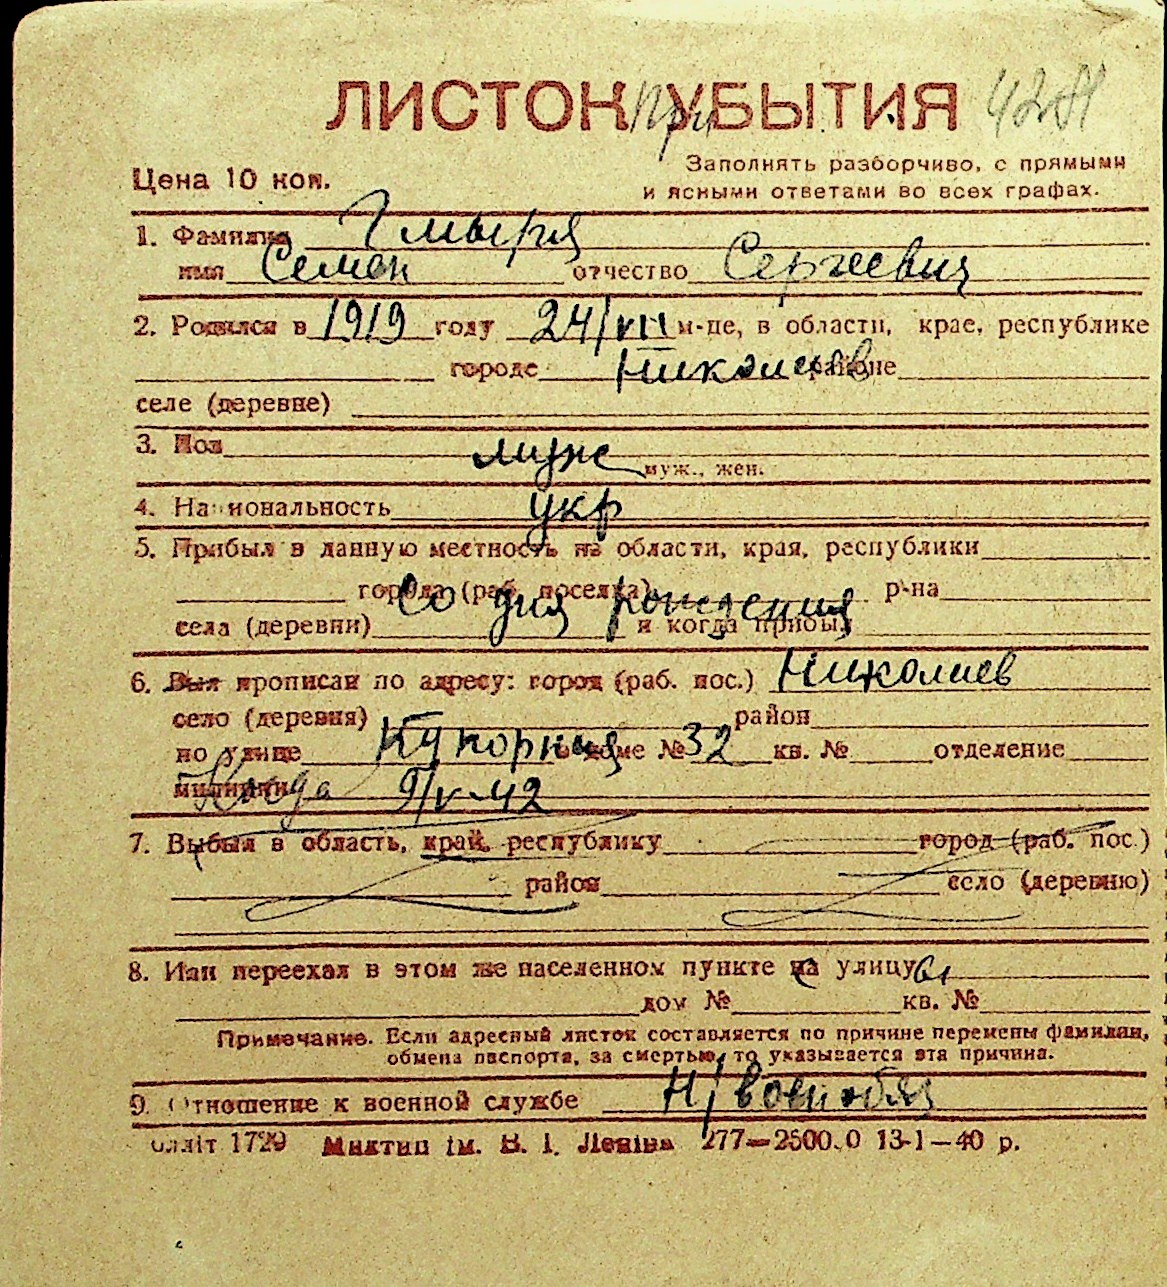 ЛИСТОК УБЫТИЯ При
Цена 10 коп.
Заполнять разборчиво, с прямыми
и ясными ответами во всех графах.
1. Фамилия Гмыря
имя Семен отчество Сергеевич
2. Родился в 1919 году 24/VII м-це, в области, крае, республике
городе Николаев районе
селе (деревне)
3. Пол муж
муж., жен.
4. Национальность укр
5. Прибыл в данную местность из области, края, республики
города (раб. поселка) р-на
Со дня рождения
села (деревни) и когда прибыл
6. Был прописан по адресу: город (раб. пос.) Николаев
село (деревня) район
по улице в доме № 32 кв. № отделение
милиции 9/V-42
7. Выбыл в область, край, республику город (раб. пос.)
район село (деревню)
8. Или переехал в этом же населенном пункте на улицу
дом № кв. №
Примечание. Если адресный листок составляется по причине перемены фамилии,
обмена паспорта, за смертью, то указывается эта причина.
9. Отношение к военной службе
1729 Миктип ім. В. І. Леніна 277—2500.0 13-1—40 р.